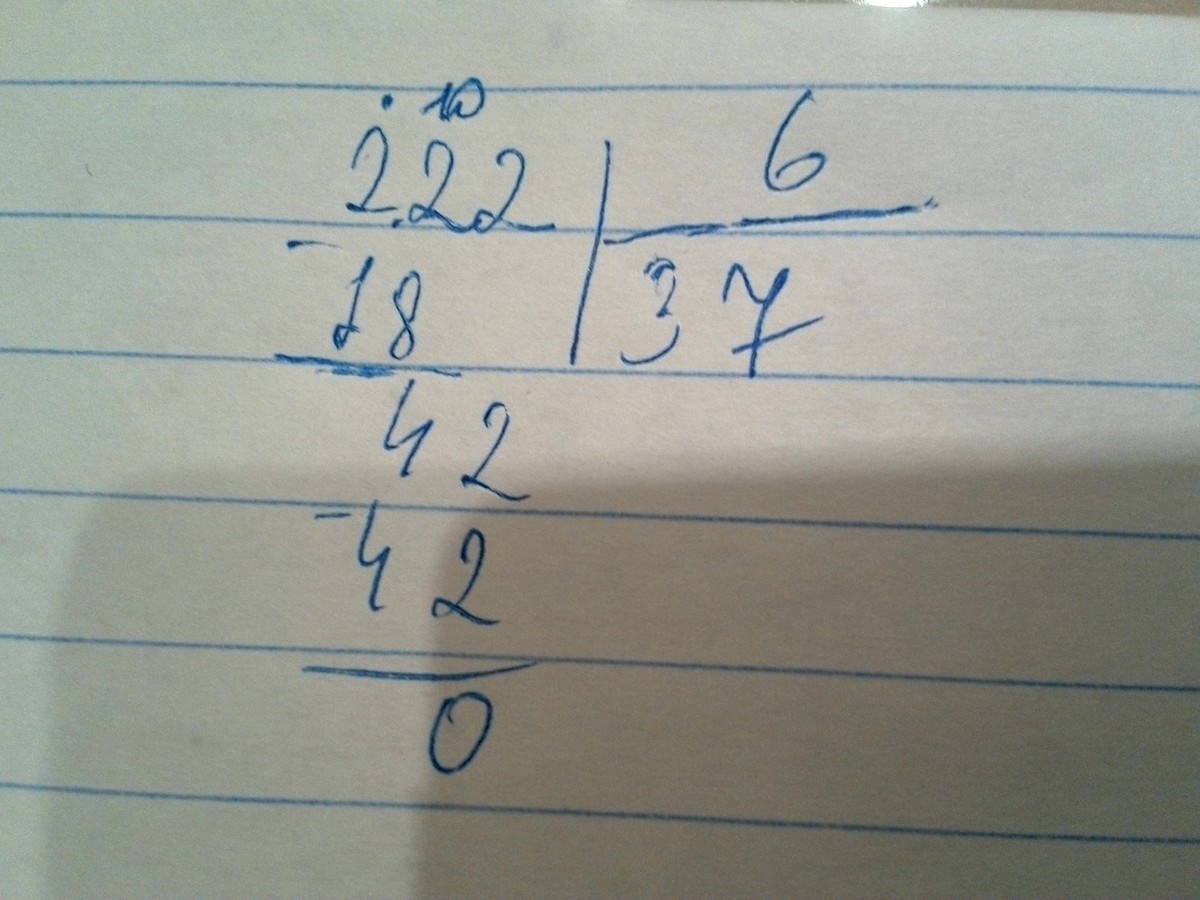 . 10
222 6
- 18 37
42
- 42
0